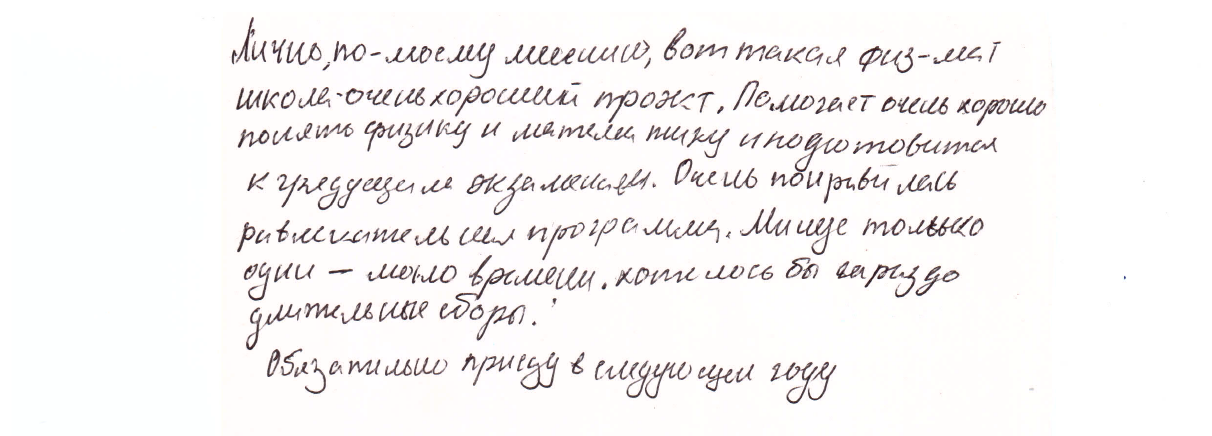 Лично, по-моему мнению, вот такая физ-мат
школа-очень хороший проэкт. Помогает очень хорошо
понять физику и математику и подготовится
к грядущим экзаменам. Очень понравилась
развлекательная программа. Минус только
один — мало времени. хотелось бы гораздо
длительные сборы.
Обязательно приеду в следующем году